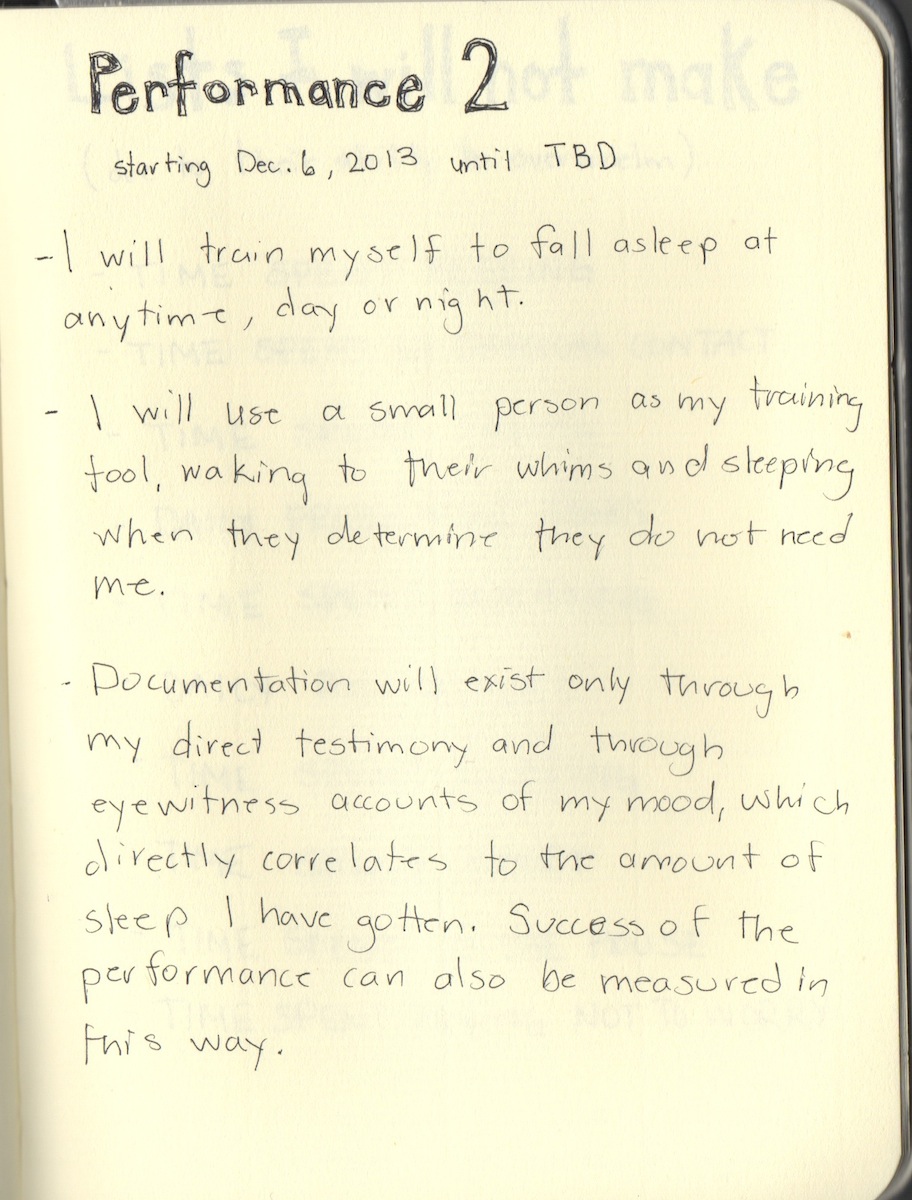 Performance 2
starting Dec. 6, 2013 until TBD
- I will train myself to fall asleep at
anytime, day or night.
- I will use a small person as my training
tool, waking to their whims and sleeping
when they determine they do not need
me.
- Documentation will exist only through
my direct testimony and through
eyewitness accounts of my mood, which
directly correlates to the amount of
sleep I have gotten. Success of the
performance can also be measured in
this way.